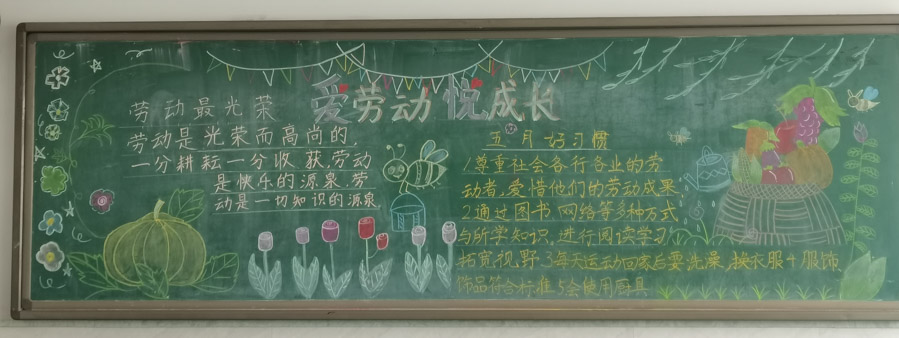 爱劳动 悦成长
劳动最光荣
劳动是光荣而高尚的,
一分耕耘一分收获,劳动
是快乐的源泉,劳
动是一切知识的源泉
五月好习惯
1尊重社会各行各业的劳
动者,爱惜他们的劳动成果
2通过图书网络等多种方式,
与所学知识,进行阅读学习
拓宽视野3每天运动回家后要洗澡,换衣服4服饰
饰品符合标准5会使用厨具